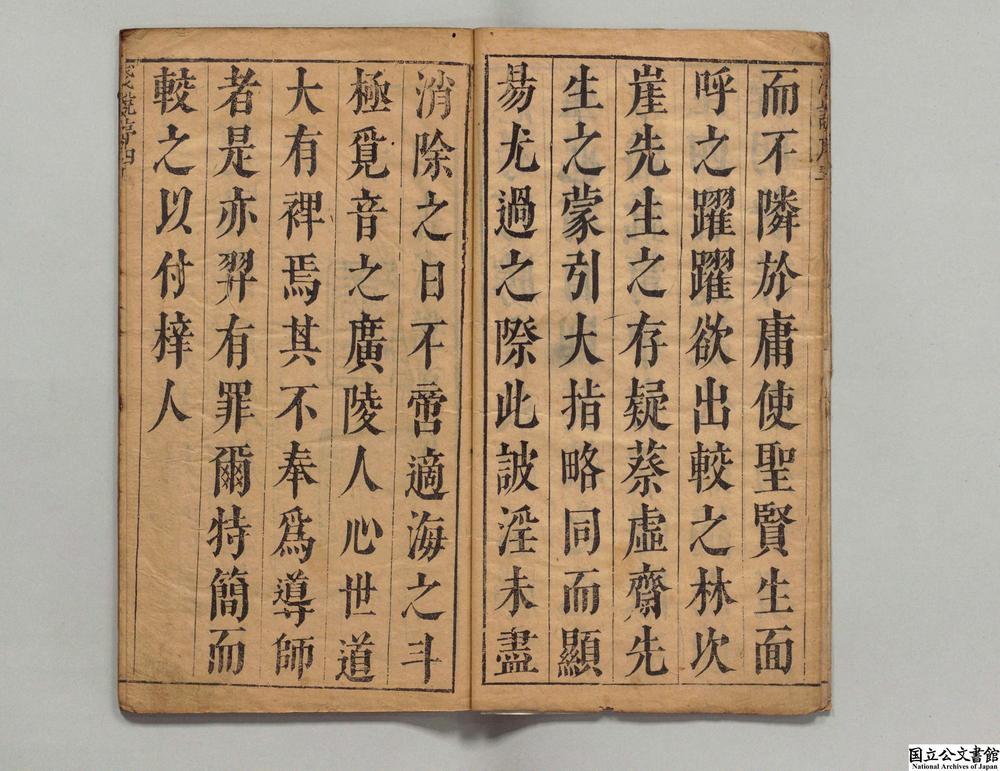 而不隣於庸使聖賢生面
呼之躍躍欲出較之林次
崖先生之存疑蔡虛齋先
生之蒙引大指略同而顯
昜尤過之際此詖淫未盡
消除之日不啻適海之斗
極覓音之廣陵人心世道
大有裨焉其不奉爲導師
者是亦羿有罪爾特簡而
較之以付梓人
国立公文書館
National Archives of Japan